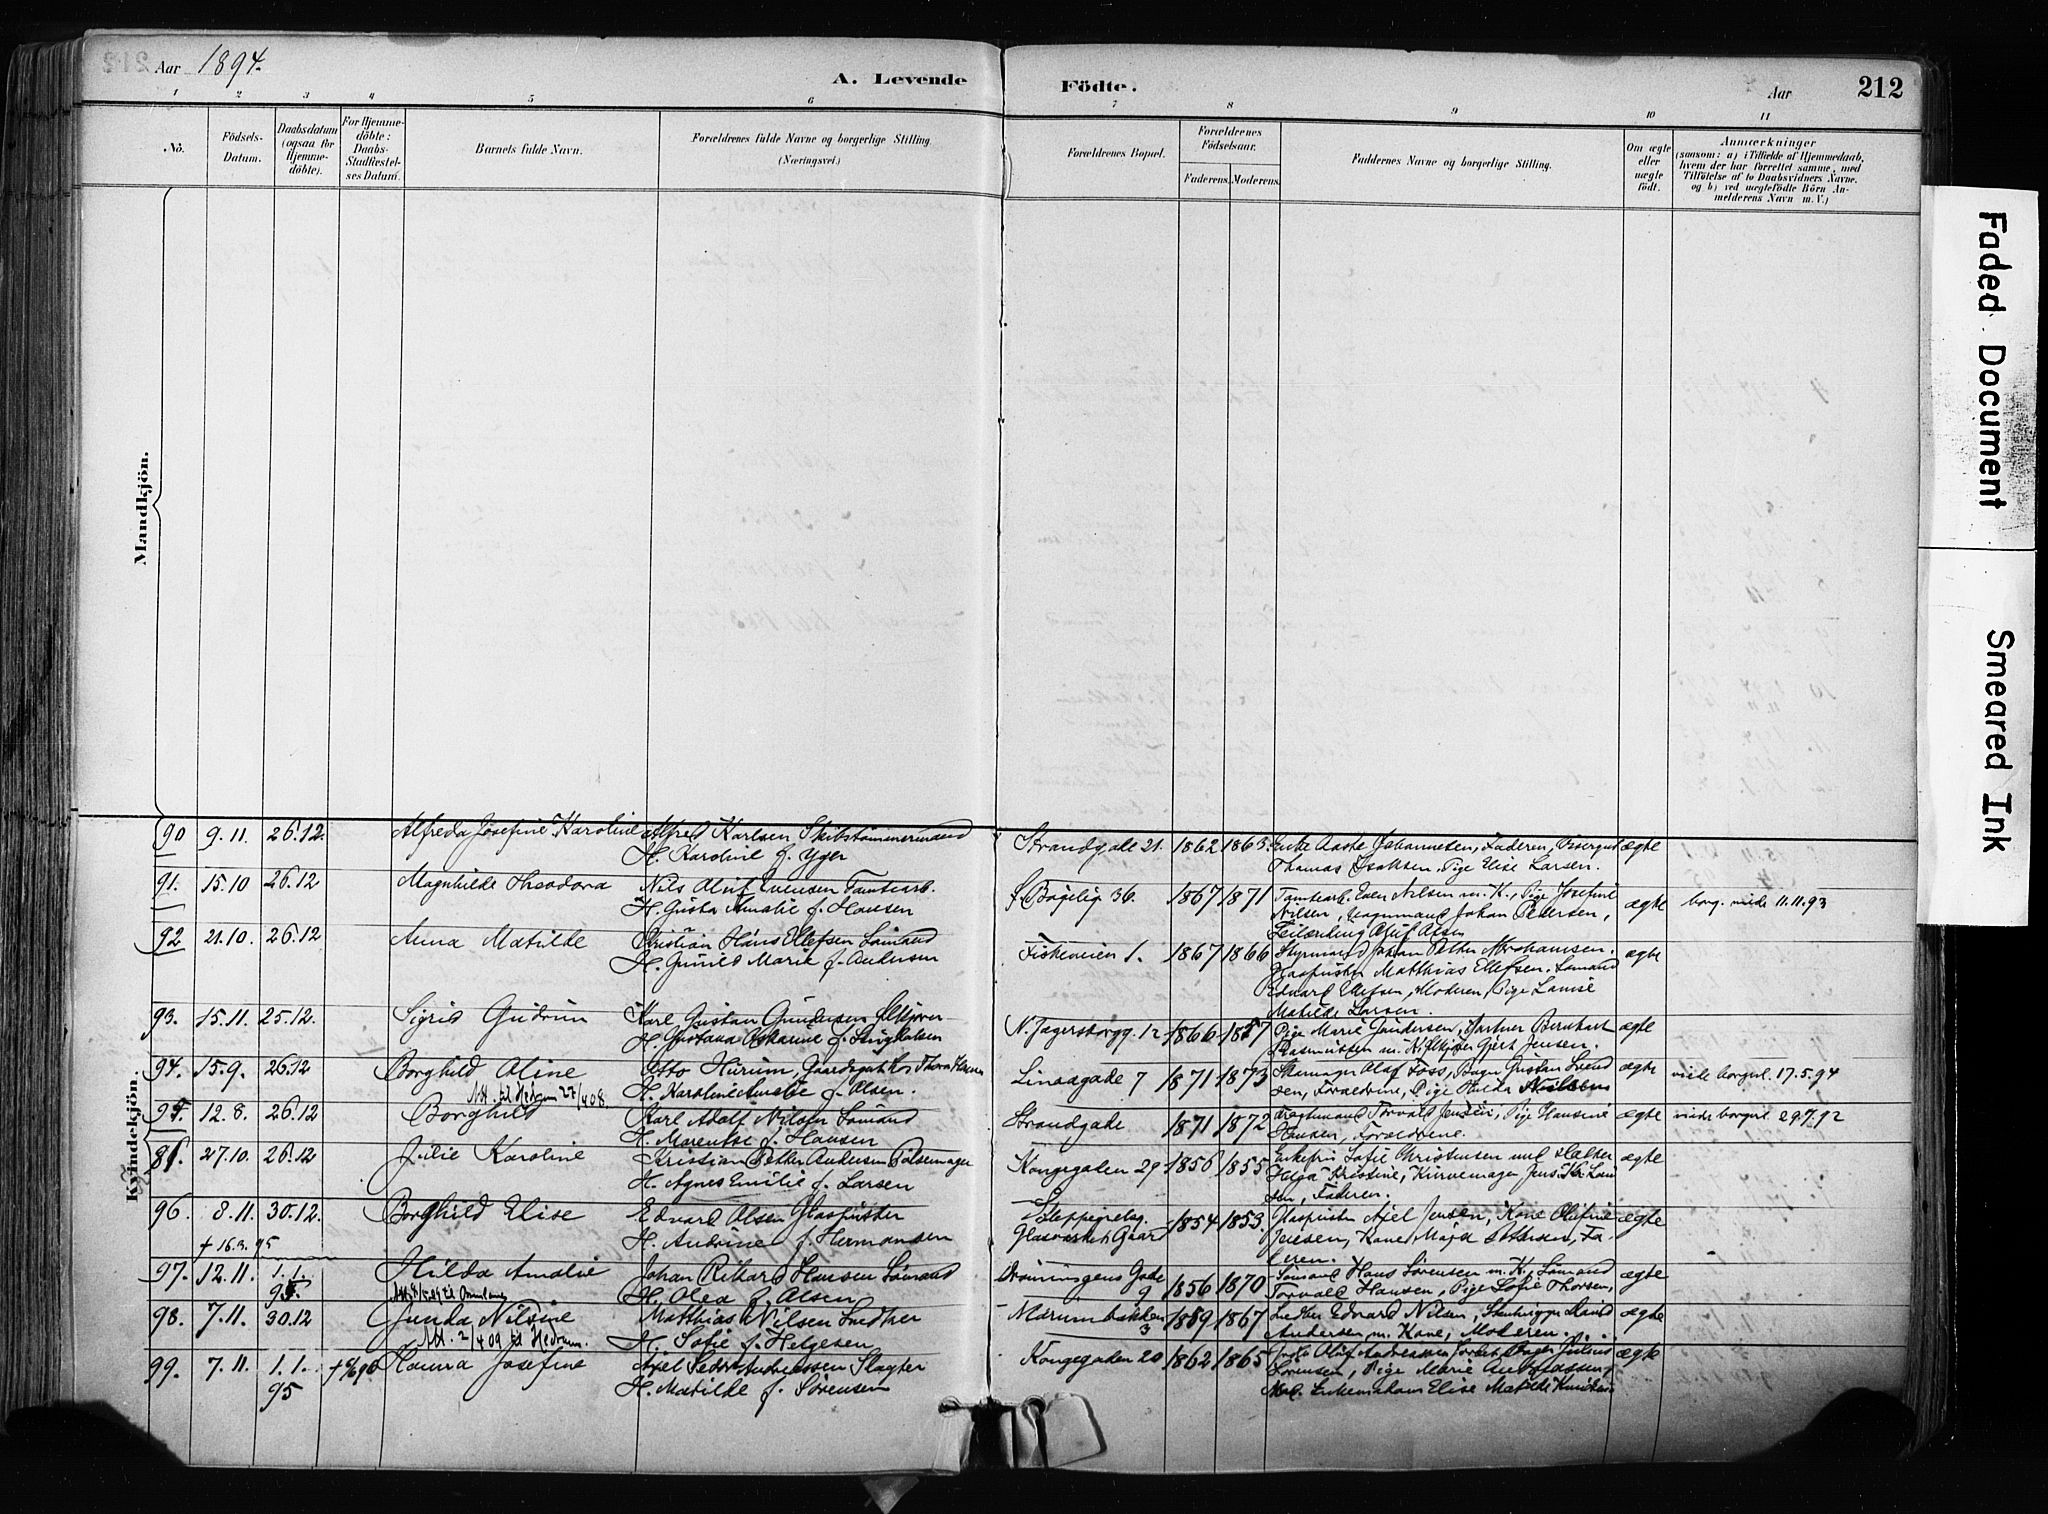 212
Aar 1894.
A. Levende Födte.
Aar
1 2 3 4 5 6 7 8 9 10 11
No.
Födsels-Datum.
Daabsdatum (ogsaa for Hjemmedöbte).
For Hjemmedöbte: Daabs-Stadfæstelses Datum.
Barnets fulde Navn.
Forældrenes fulde Navne og borgerlige Stilling
(Næringsvei.)
Forældrenes Bopæl.
Forældrenes Födselsaar.
Faderens. Moderens.
Faddernes Navne og borgerlige Stilling.
Om ægte eller uægte födt.
Anmærkninger
(saasom: a) i Tilfælde af Hjemmedaab, hvem der har forrettet samme, med Tilföielse af to Daabsvidners Navne, og b) ved uægtefödte Börn Anmelderens Navn m. V.)
Mandkjön.
Kvindekjön.
90 9.11. 26.12. Alfreda Josefine Karoline Alfred Karlsen Skibstömmermand
H. Karoline f. Yger
Strandgade 21. 1862 1863. Enke Aaste Johannesen, Faderen,
Thomas Isaksen, Pige Elise Larsen. ægte
91. 15.10 26.12 Magnhilde Theodora Nils Oluf Evensen Tomtearb.
H. Gusta Amalie f. Hansen
Bøgelig 36. 1867 1871 Tomtearb. Even Nilsen m. K., Pige Josefine
Nilsen, Johan Pedersen,
Olsen ægte borg. viede 11.11.93
92 21.10. 26.12 Anna Matilde Kristian Hans Ellefsen Sömand
H. Gunild Marie f. Andersen
Fiskeveien 1. 1867 1866 Styrmand Johan Petter Abrahamsen.
Glaspuster Matthias Ellefsen, Sömand
Edvard Ellefsen, Moderen, Pige Lovise
Matilde Larsen. ægte
93. 15.11. 25.12. Sigrid Gudrun Karl Gustav Gundersen
H. Gustava Oskarine f.
N. Jegersborgg. 12 1866 1857 Pige Marie Gundersen, Gartner Bernhart
Rasmussen m. K., Gjert Jensen. ægte
94. 15.9. 26.12 Borghild Aline Otto Hurum, Gaardsgut hos Thora
H. Karoline Amalie f. Olsen.
Att. til Hedrum 27/4 08.
Linaagade 7 1871 1873 Skomager Olaf Foss, Bager Gustav Svend
sen, Forældrene, Pige Hulda Nilsen ægte viede borgerl. 17.5.94
95. 12.8. 26.12 Borghild Karl Adolf Nilsen Sömand
H. Marentse f. Hansen
Strandgade 1871 1872 Torvald Jensen, Pige Hansine
Hansen, Forældrene. ægte viede borgerl 29.7.92
27.10. 26.12 Julie Karoline Kristian Petter Andersen Pölsemager
H. Agnes Emilie f. Larsen
Kongegaden 29 1856 1855 Enkefru Sofie Christensen med Datter
Helga Kristine, Kurvemager Jens Kr. Laur
sen, Faderen. ægte
96. 8.11. 30.12. Borghild Elise Edvard Olsen Glaspuster
† 16.3.95 H. Andrine f. Hermansen
Steppigrelsg.
Glasværkets Gaard 1854 1853. Glaspuster Axel Jensen, Kone Olufine
Jensen, Kone Maja Ottersen, Fa
deren. ægte
97. 12.11. 1.1.95 Hilda Amalie Johan Rikard Hansen Sömand
H. Olea f. Olsen
Dronningens Gade 9 1856 1870 Sömand Hans Sörensen m. K., Sömand
Torvald Hansen, Pige Sofie Thorsen, ægte
98. 7.11. 30.12 Gunda Nilsine Matthias Nilsen Snedker
Att. 2/4 09 til Hedrum. H. Sofie f. Helgesen
Marumbakken 3 1859 1867 Snedker Edvard Nilsen, Stenhugger Maurits
Andersen m. Kone, Moderen. ægte
99. 7.11. 1.1.95 Hanna Josefine Axel Peder Andreassen Slagter
H. Matilde f. Sörensen
Kongegaden 20 1862 1865 Oluf Andreassen, Bager Julius
Sörensen, Pige Marie Andreassen,
Enkemadam Elise Matilde ægte
Faded Document
Smeared Ink